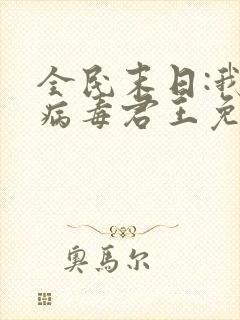 全民末日:我
病毒君主免
奥馬尔